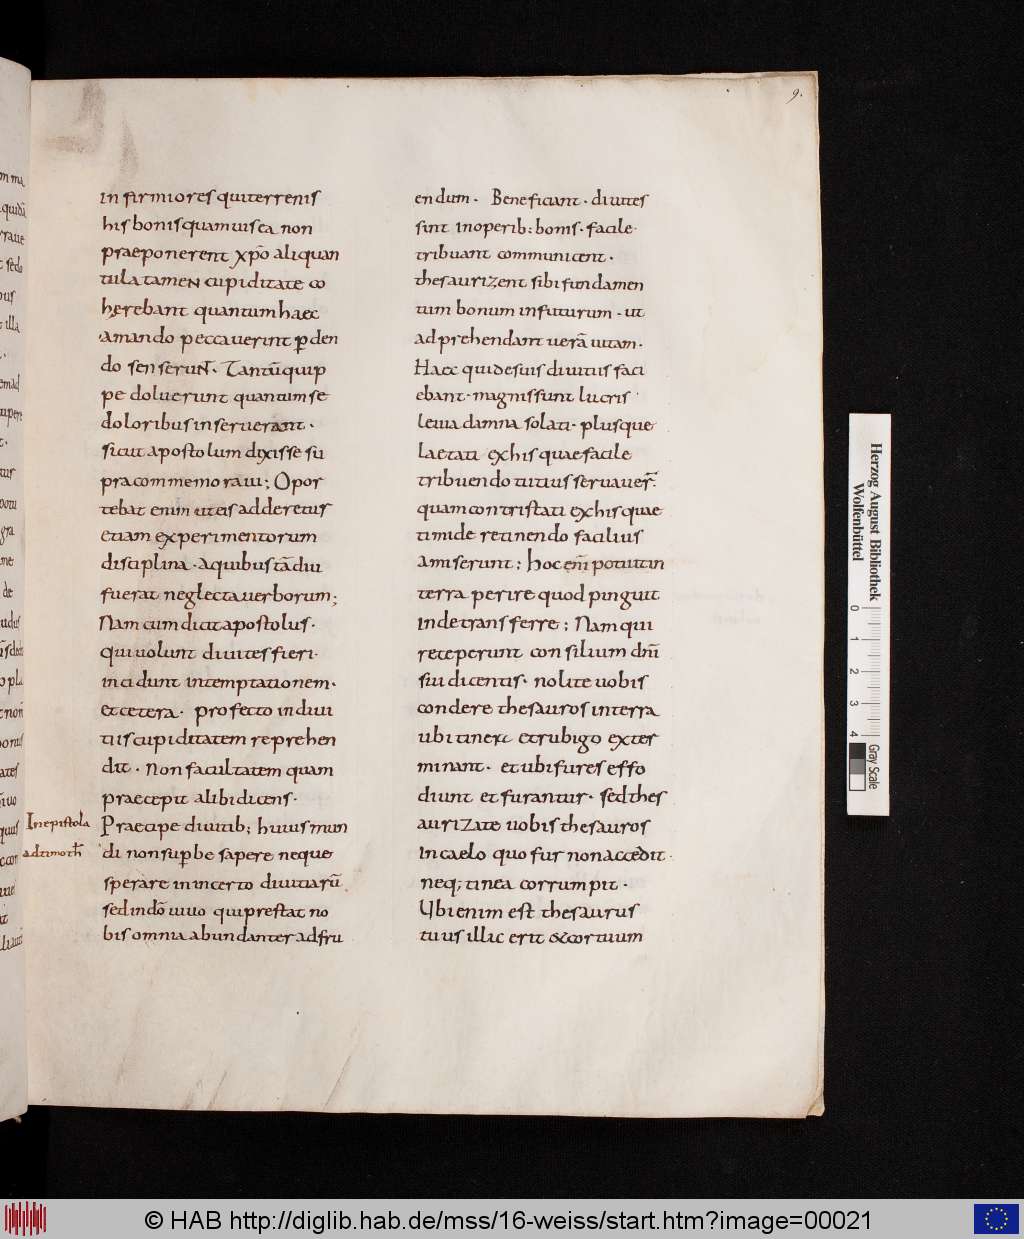 9.
in firmiores qui terrenis
his bonis quamuis ea non
praeponerent xp̄o aliquan
tula tamen cupiditate co
herebant quantum haec
amando peccauerint ꝑden
do senserun̄t. Tantū quip
pe doluerunt quantum se
doloribus inseruerant.
sicut apostolum dixisse su
pra commemoraui; Opor
tebat enim ut eis adderetus
etiam experimentorum
disciplina. A quibus tā diu
fuerat neglecta uerborum;
Nam cum dicit apostolus.
qui uolunt diuites fieri.
incidunt intemptationem.
et cetera. profecto in diui
tiis cupiditatem reprehen
dit. Non facultatem quam
praecepit alibi dicens.
In epistola
Praecipe diuitib; huius mun
ad timoth̄
di non suꝑbe sapere neque
sperare in incerto diuitiarū
sed in dō uiuo qui prestat no
bis omnia abundanter ad fru
endum. Beneficiant. diuites
sint in operib; bonis. facile
tribuant communicent.
thesaurizent sibi fundamen
tum bonum in futurum. ut
adprehendant uerā uitam.
Haec qui de suis diuitiis faci
ebant. magnis sunt lucris
leuia damna solati. plusque
laetati ex his quae facile
tribuendo tutius seruauer̄.
quam contristati ex his quae
timide retinendo facilius
amiserunt; hoc enī potuit in
terra perire quod pinguit
inde transferre; Nam qui
receperunt consilium dn̄i
sui dicentis. nolite uobis
condere thesauros in terra
ubi tinea et rubigo exter
minant. et ubi fures effo
diunt et furantur. sed thes
aurizate uobis thesauros
in caelo quo fur non accedit.
neq; tinea corrumpit.
Ubi enim est thesaurus
tuus illic erit & cor tuum
Herzog August Bibliothek
Wolfenbüttel
0 1 2 3 4
Gray Scale
© HAB http://diglib.hab.de/mss/16-weiss/start.htm?image=00021